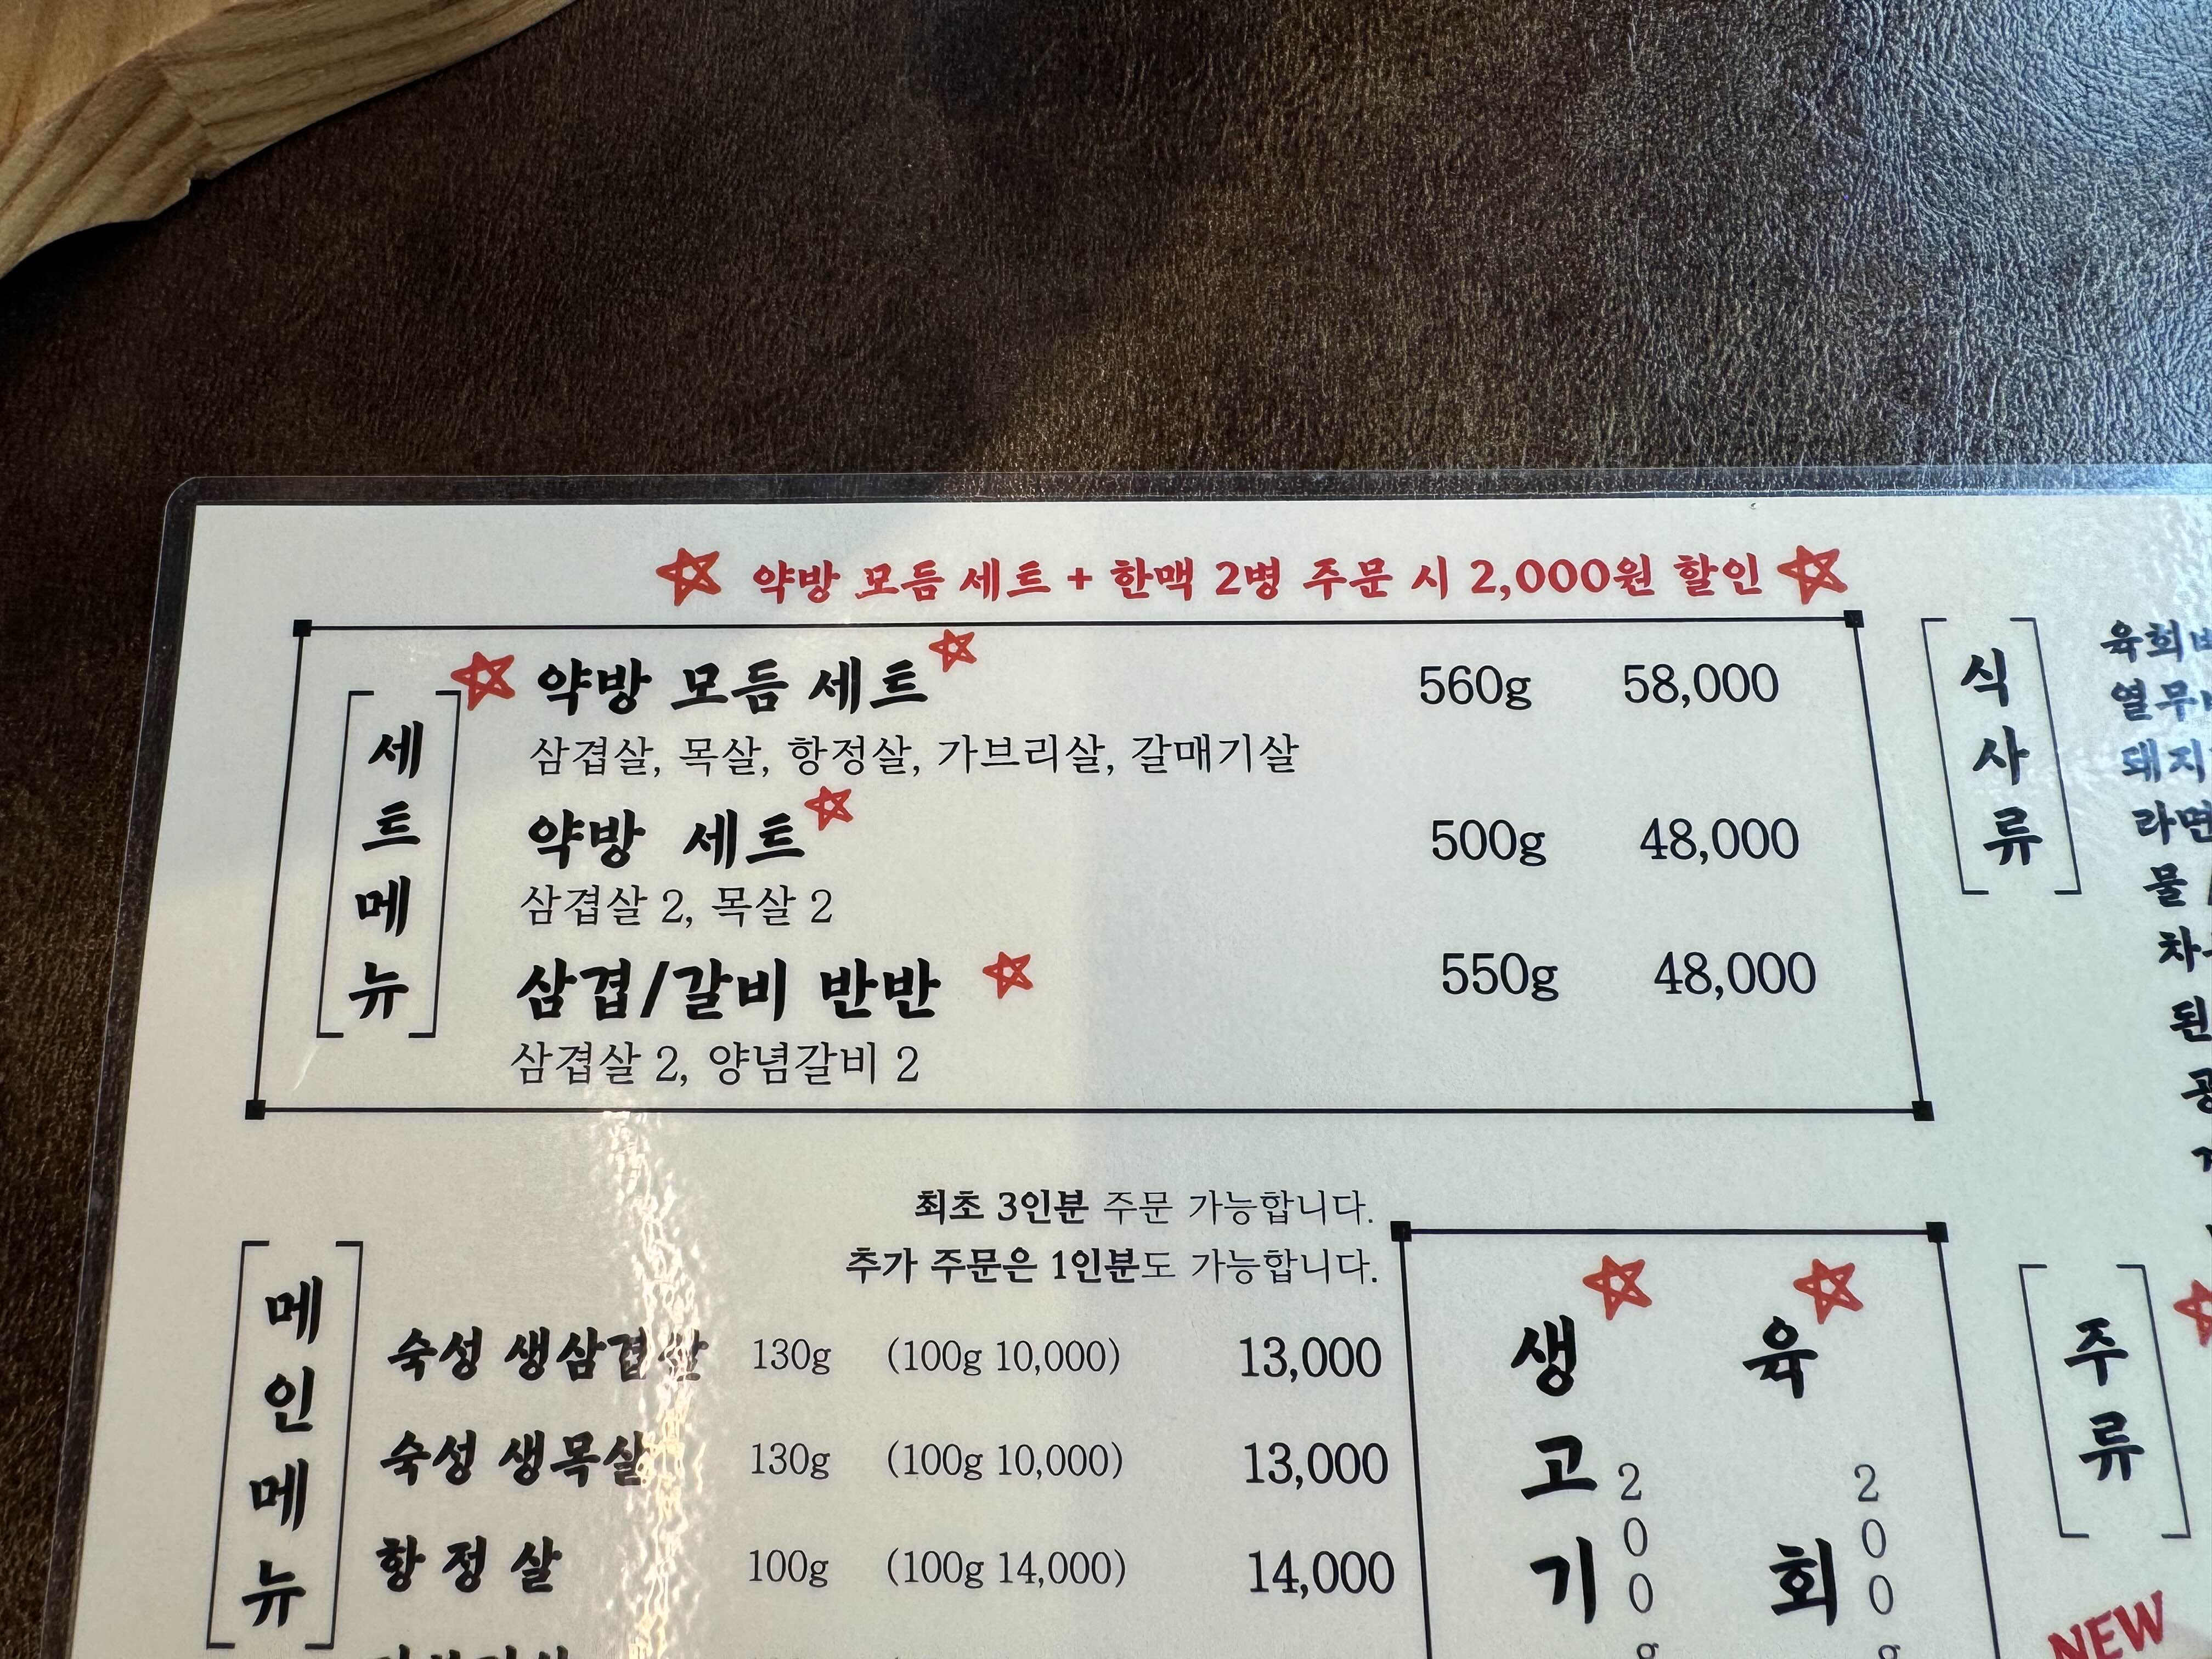 약방 모듬 세트 + 한맥 2병 주문 시 2,000원 할인
세트메뉴
약방 모듬 세트 560g 58,000
삼겹살, 목살, 항정살, 가브리살, 갈매기살
약방 세트 500g 48,000
삼겹살 2, 목살 2
삼겹/갈비 반반 550g 48,000
삼겹살 2, 양념갈비 2
최초 3인분 주문 가능합니다.
추가 주문은 1인분도 가능합니다.
메인메뉴
숙성 생삼겹살 130g (100g 10,000) 13,000
숙성 생목살 130g (100g 10,000) 13,000
항정살 100g (100g 14,000) 14,000
생고기 200g
육회 200g
식사류
돼지
라면
물
주류
NEW